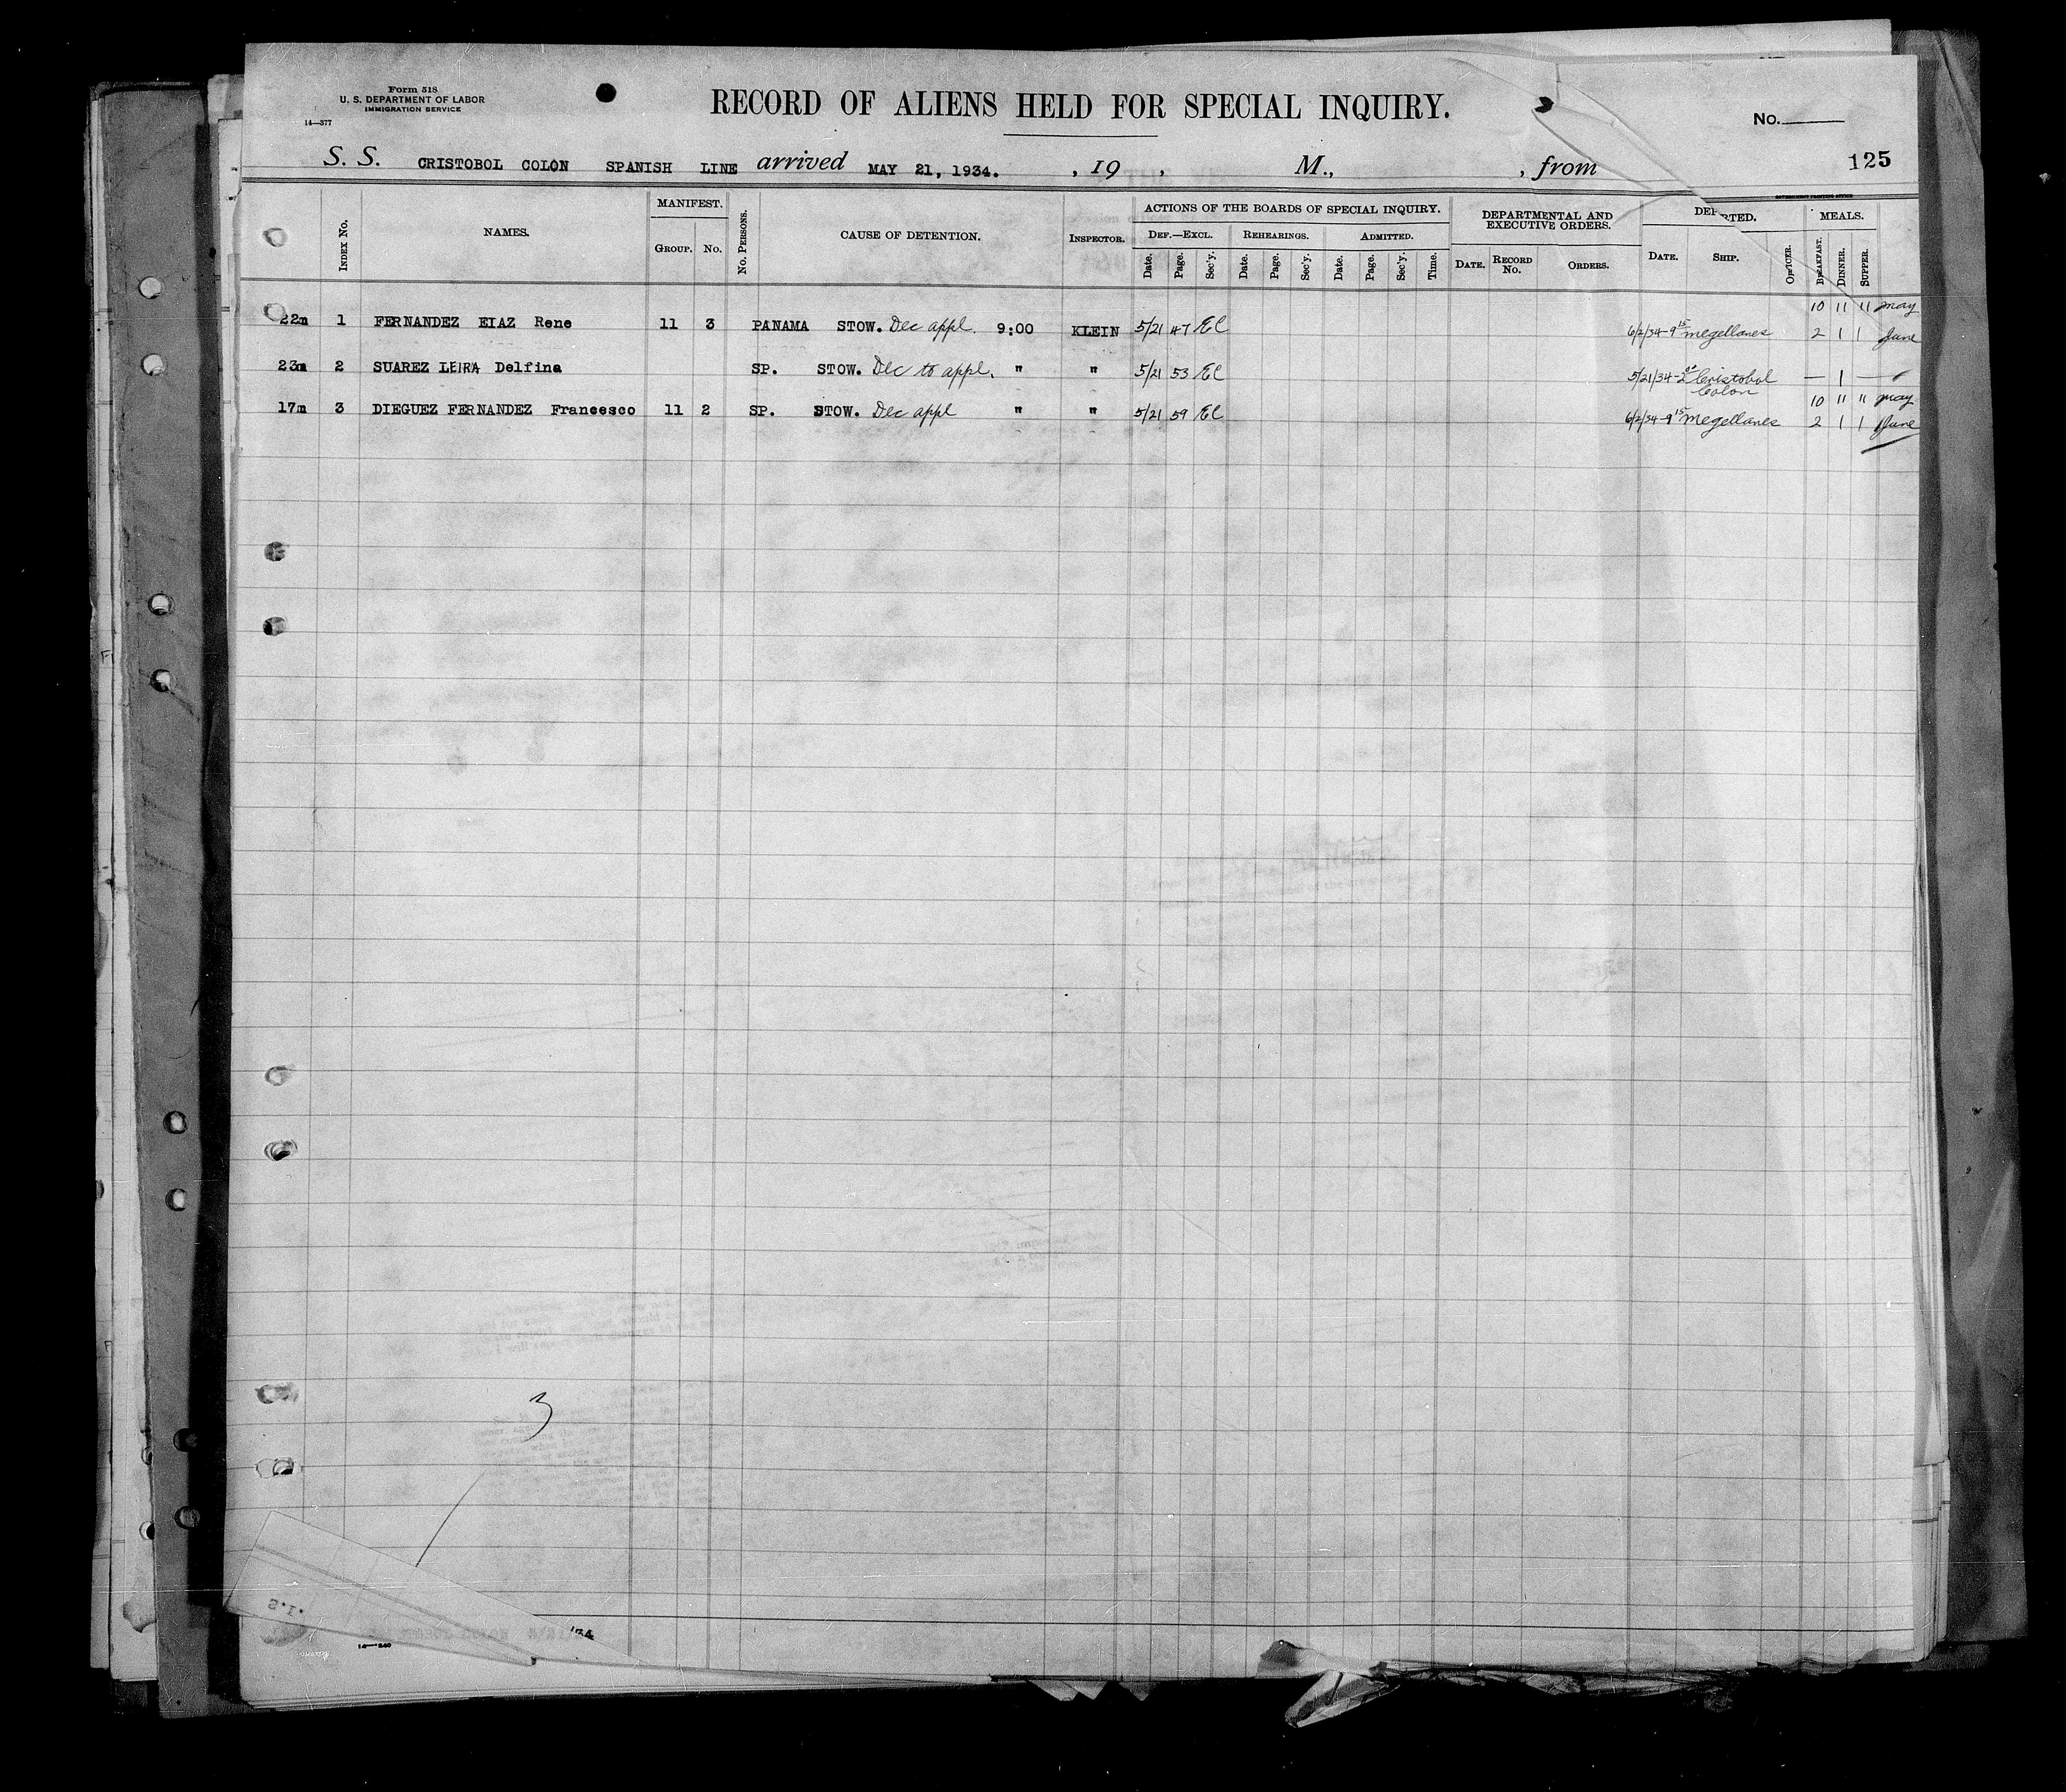 Form 518
U. S. DEPARTMENT OF LABOR
IMMIGRATION SERVICE
14—377
RECORD OF ALIENS HELD FOR SPECIAL INQUIRY.
No.
S. S. CRISTOBOL COLON SPANISH LINE arrived MAY 21, 1934. , 19 , M., , from
125
GOVERNMENT PRINTING OFFICE
INDEX No. NAMES. MANIFEST. GROUP. No. No. PERSONS. CAUSE OF DETENTION. INSPECTOR.
ACTIONS OF THE BOARDS OF SPECIAL INQUIRY.
DEF.—EXCL. REHEARINGS. ADMITTED.
Date. Page. Sec'y. Date. Page. Sec'y. Date. Page. Sec'y. Time.
DEPARTMENTAL AND EXECUTIVE ORDERS.
DATE. RECORD No. ORDERS.
DEP RTED.
DATE. SHIP. OFFICER.
MEALS.
BREAKFAST. DINNER. SUPPER.
10 11 11 may
22m 1 FERNANDEZ EIAZ Rene 11 3 PANAMA STOW. Dec appl. 9:00 KLEIN 5/21 47 EC 6/2/34-9 15 Megellanes 2 1 1 June
23m 2 SUAREZ LEIRA Delfina SP. STOW. Dec to appl. " " 5/21 53 EC 5/21/34-2 Cristobal Colon — 1 —
10 11 11 may
17m 3 DIEGUEZ FERNANDEZ Francesco 11 2 SP. STOW. Dec appl " " 5/21 59 EC 6/2/34-9 15 Megellanes 2 1 1 June
3
'34